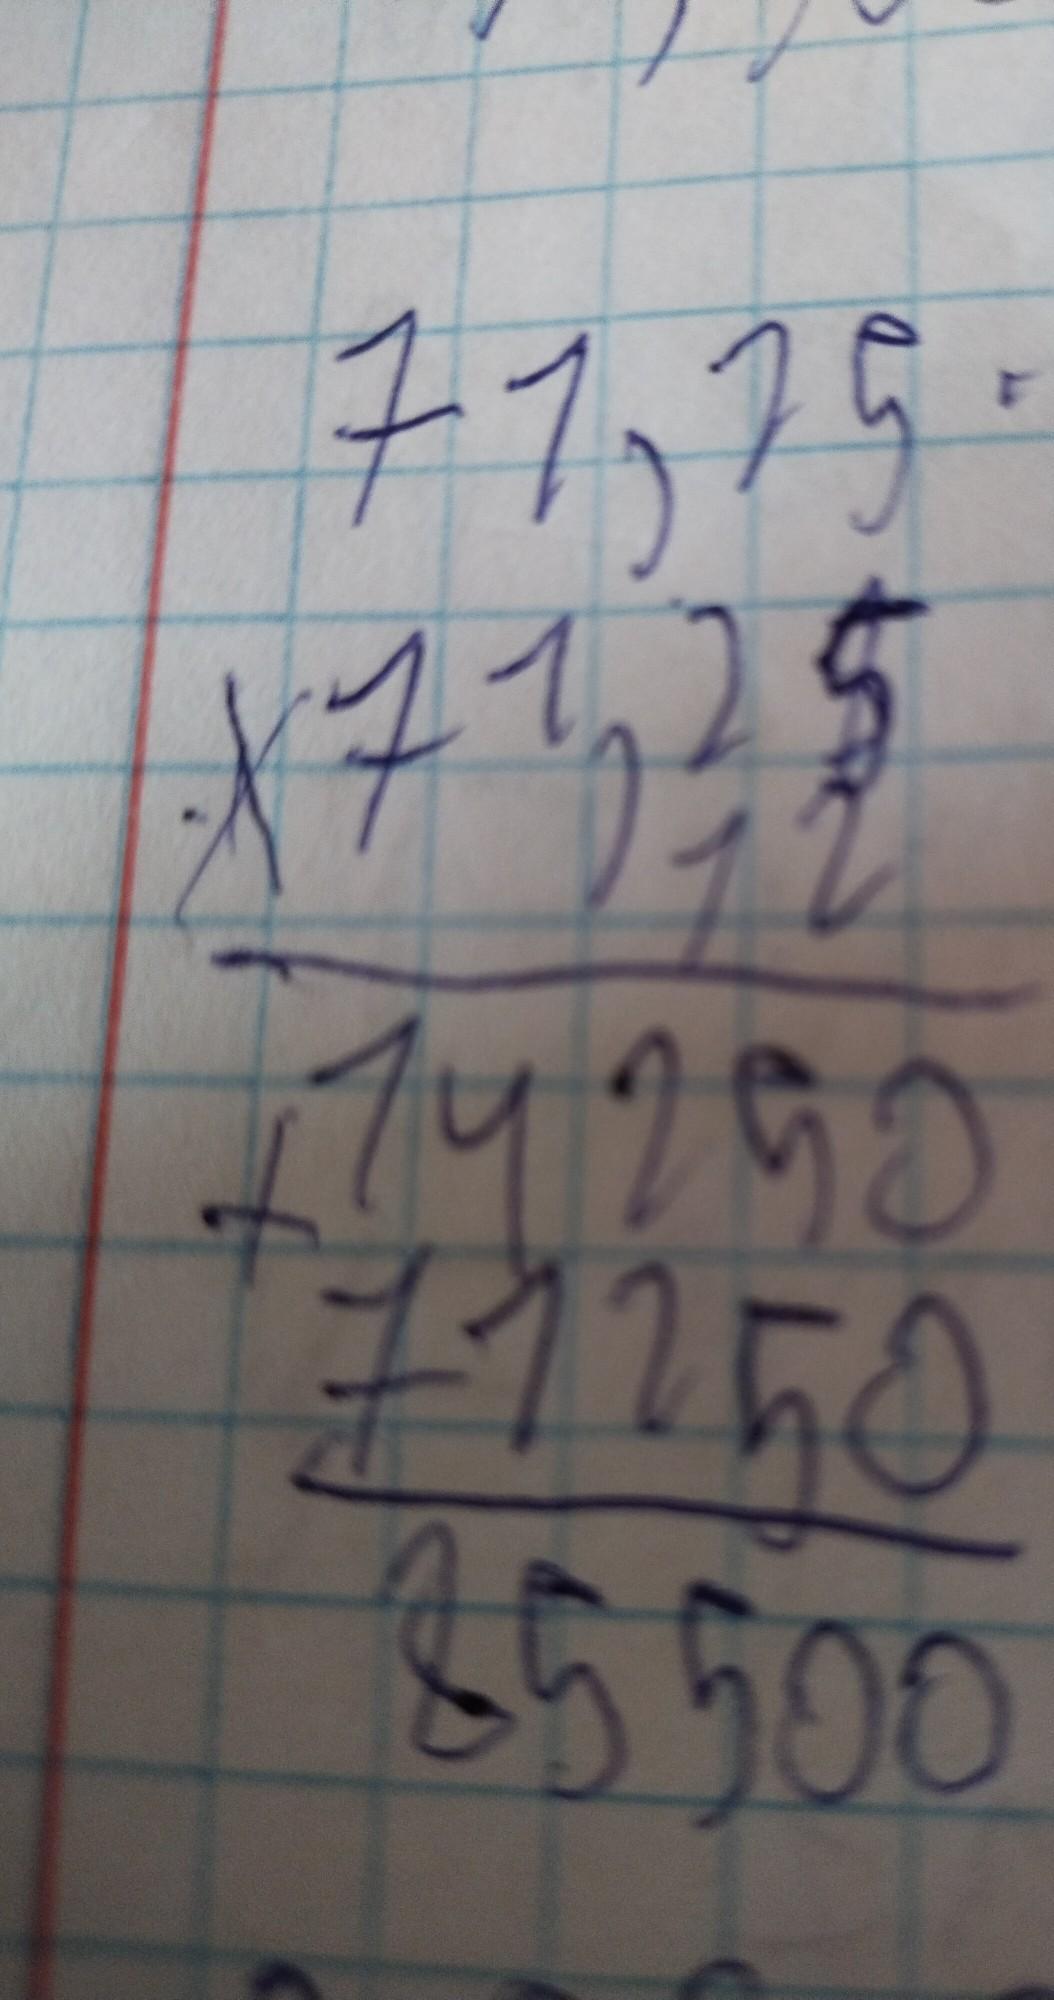 71,25 ·
× 71,25
12
14250
+
71250
85500